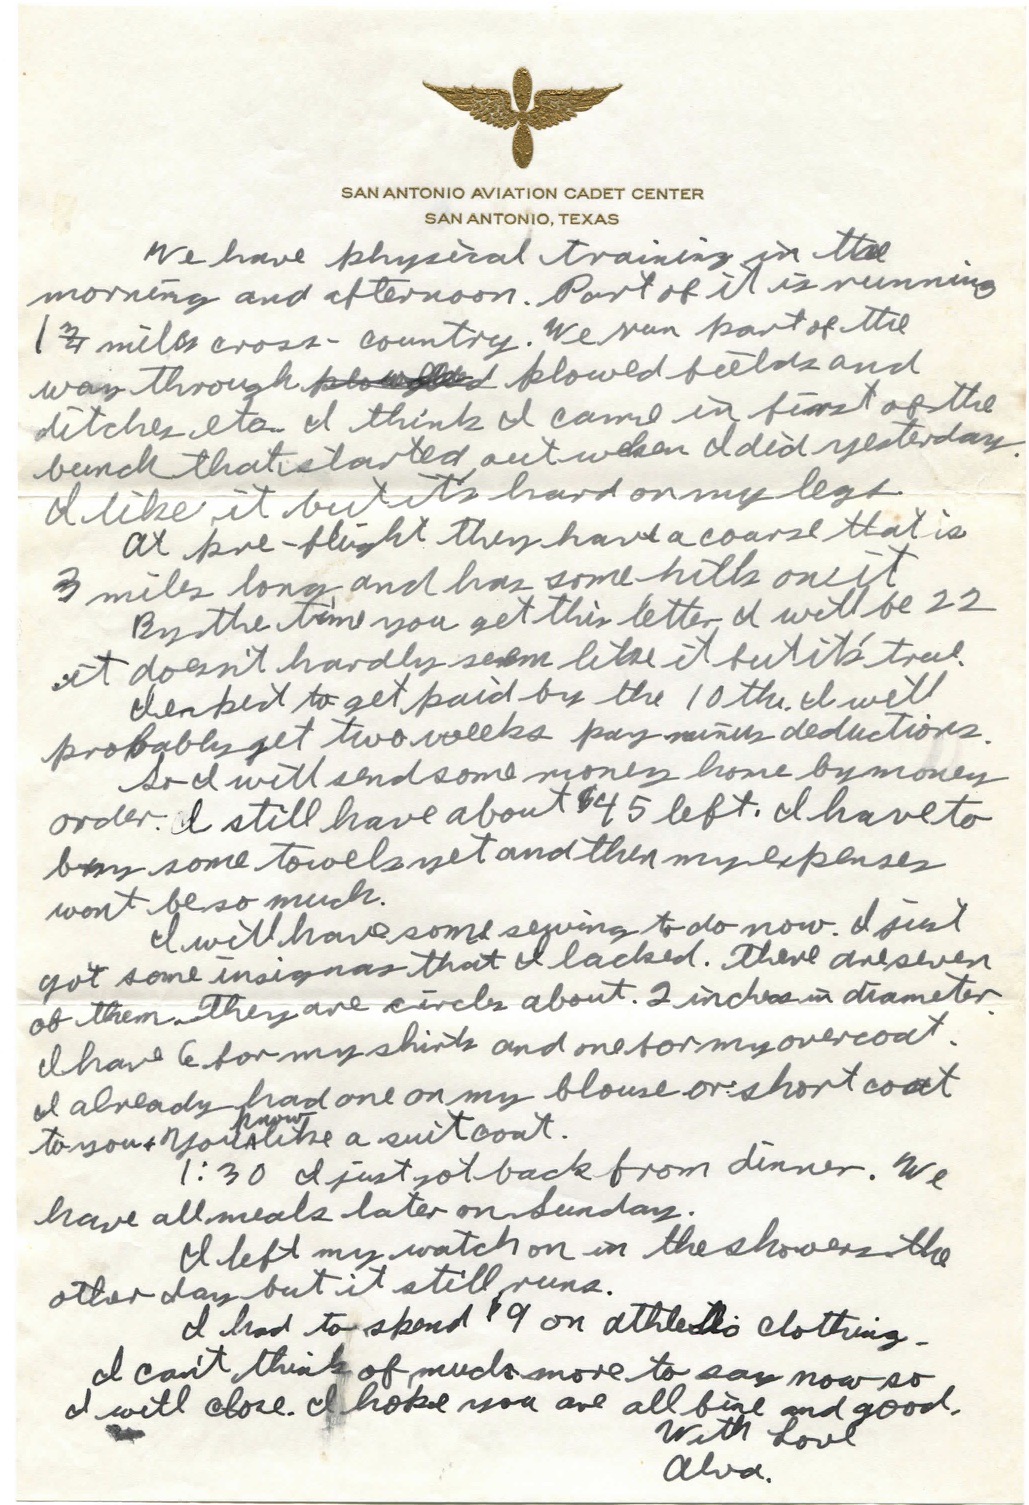 SAN ANTONIO AVIATION CADET CENTER
SAN ANTONIO, TEXAS
We have physical training in the
morning and afternoon. Part of it is running
1 3/4 miles cross-country. We run part of the
way through plowed fields and
ditches etc. I think I came in first of the
bunch that started out when I did yesterday.
I like it but it's hard on my legs.
At pre-flight they have a coarse that is
3 miles long and has some hills on it
By the time you get this letter I will be 22
it doesn't hardly seem like it but it's true.
I expect to get paid by the 10th. I will
probably get two weeks pay minus deductions.
So I will send some money home by money
order. I still have about $45 left. I have to
buy some towels yet and then my expenses
wont be so much.
I will have some sewing to do now. I just
got some insignas that I lacked. There are seven
of them. They are circles about. 2 inches in diameter.
I have 6 for my shirts and one for my overcoat.
I already had one on my blouse or short coat
to you. You know like a suit coat.
1:30 I just got back from dinner. We
have all meals later on Sunday.
I left my watch on in the showers the
other day but it still runs.
I had to spend $9 on athletic clothing.
I can't think of much more to say now so
I will close. I hope you are all fine and good.
With Love
Alva.